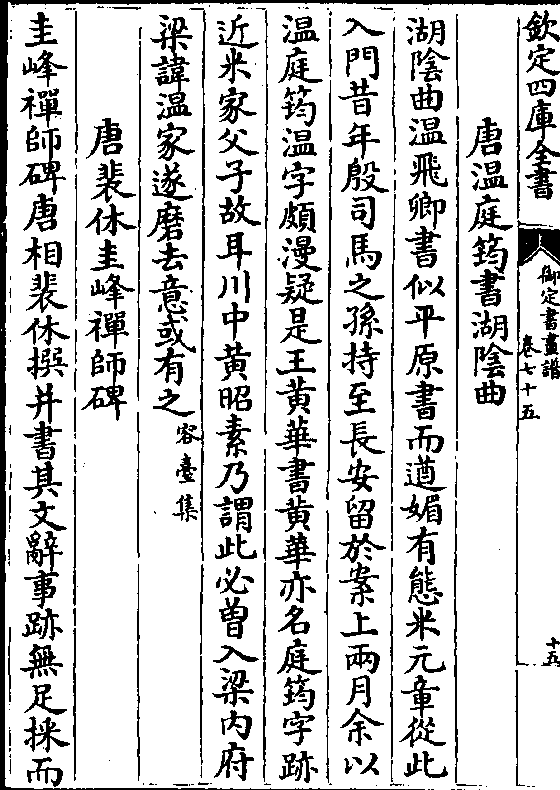 欽定四庫全書
御定書畫譜
卷七十五
十五
唐溫庭筠書湖陰曲
湖陰曲溫飛卿書似平原書而遒媚有態米元章從此
入門昔年殷司馬之孫持至長安留於案上兩月余以
溫庭筠溫字頗漫疑是王黃華書黃華亦名庭筠字跡
近米家父子故耳川中黃昭素乃謂此必曽入梁內府
梁諱溫家遂磨去意或有之
容臺集
唐裴休圭峰禪師碑
圭峰禪師碑唐相裴休撰并書其文辭事跡無足採而